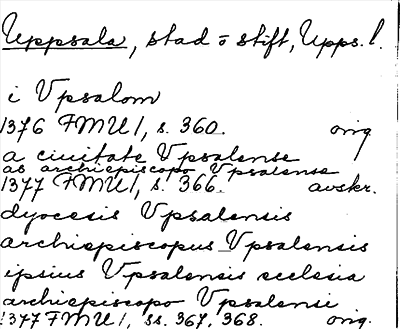 Uppsala, stad o stift, Upps. l.
i Vpsalom
1376 FMU 1, s. 360. orig
a ciuitate Vpsalense
ab archiepiscopo Vpsalense
1377 FMU 1, s. 366. avskr.
dyocesis Vpsalensis
archiepiscopus Vpsalensis
ipsius Vpsalensis ecclesia
archiepiscopo Vpsalensi
1377 FMU 1, ss. 367, 368. orig.